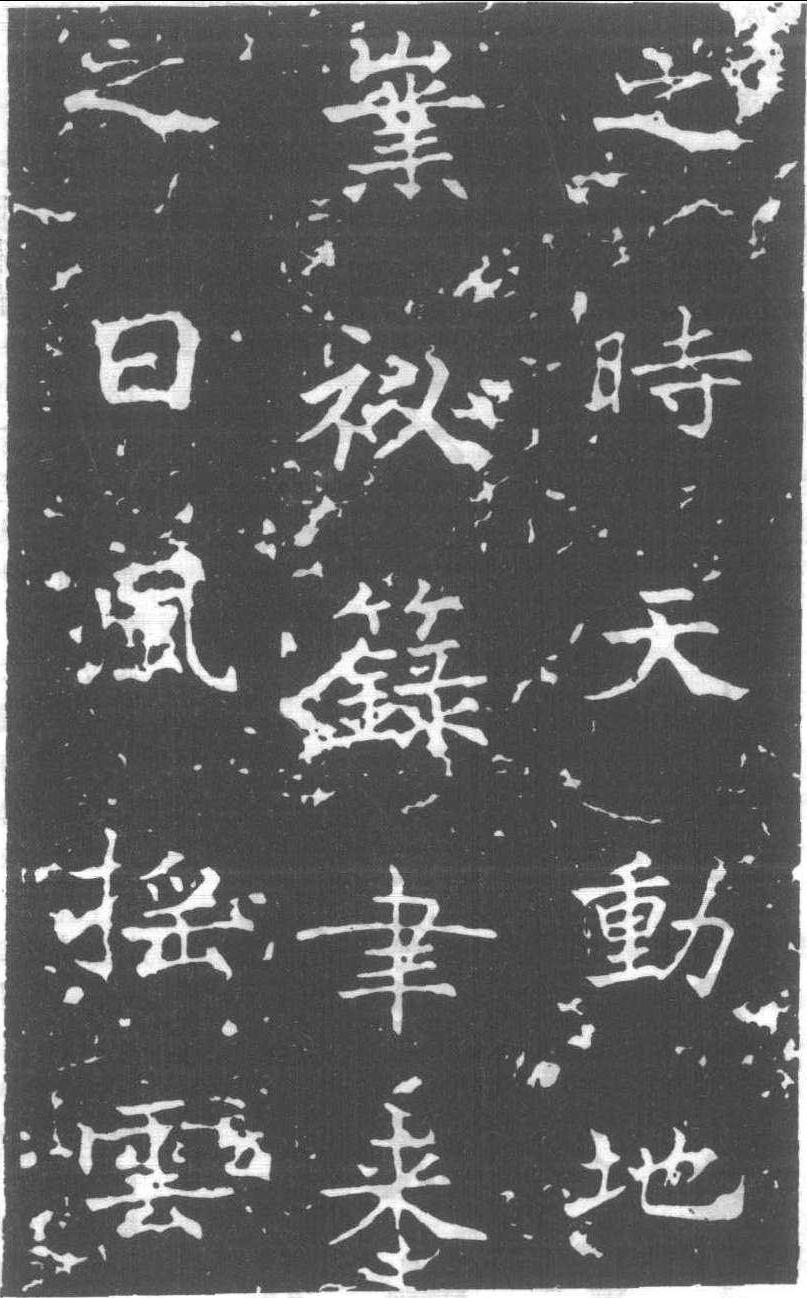 之時天動地
業祕籙聿来
之日風搖雲